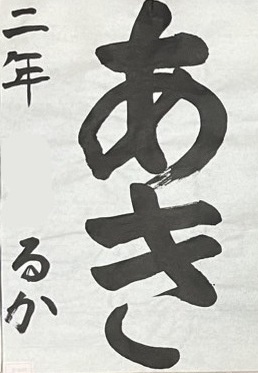 あき
二年
るか